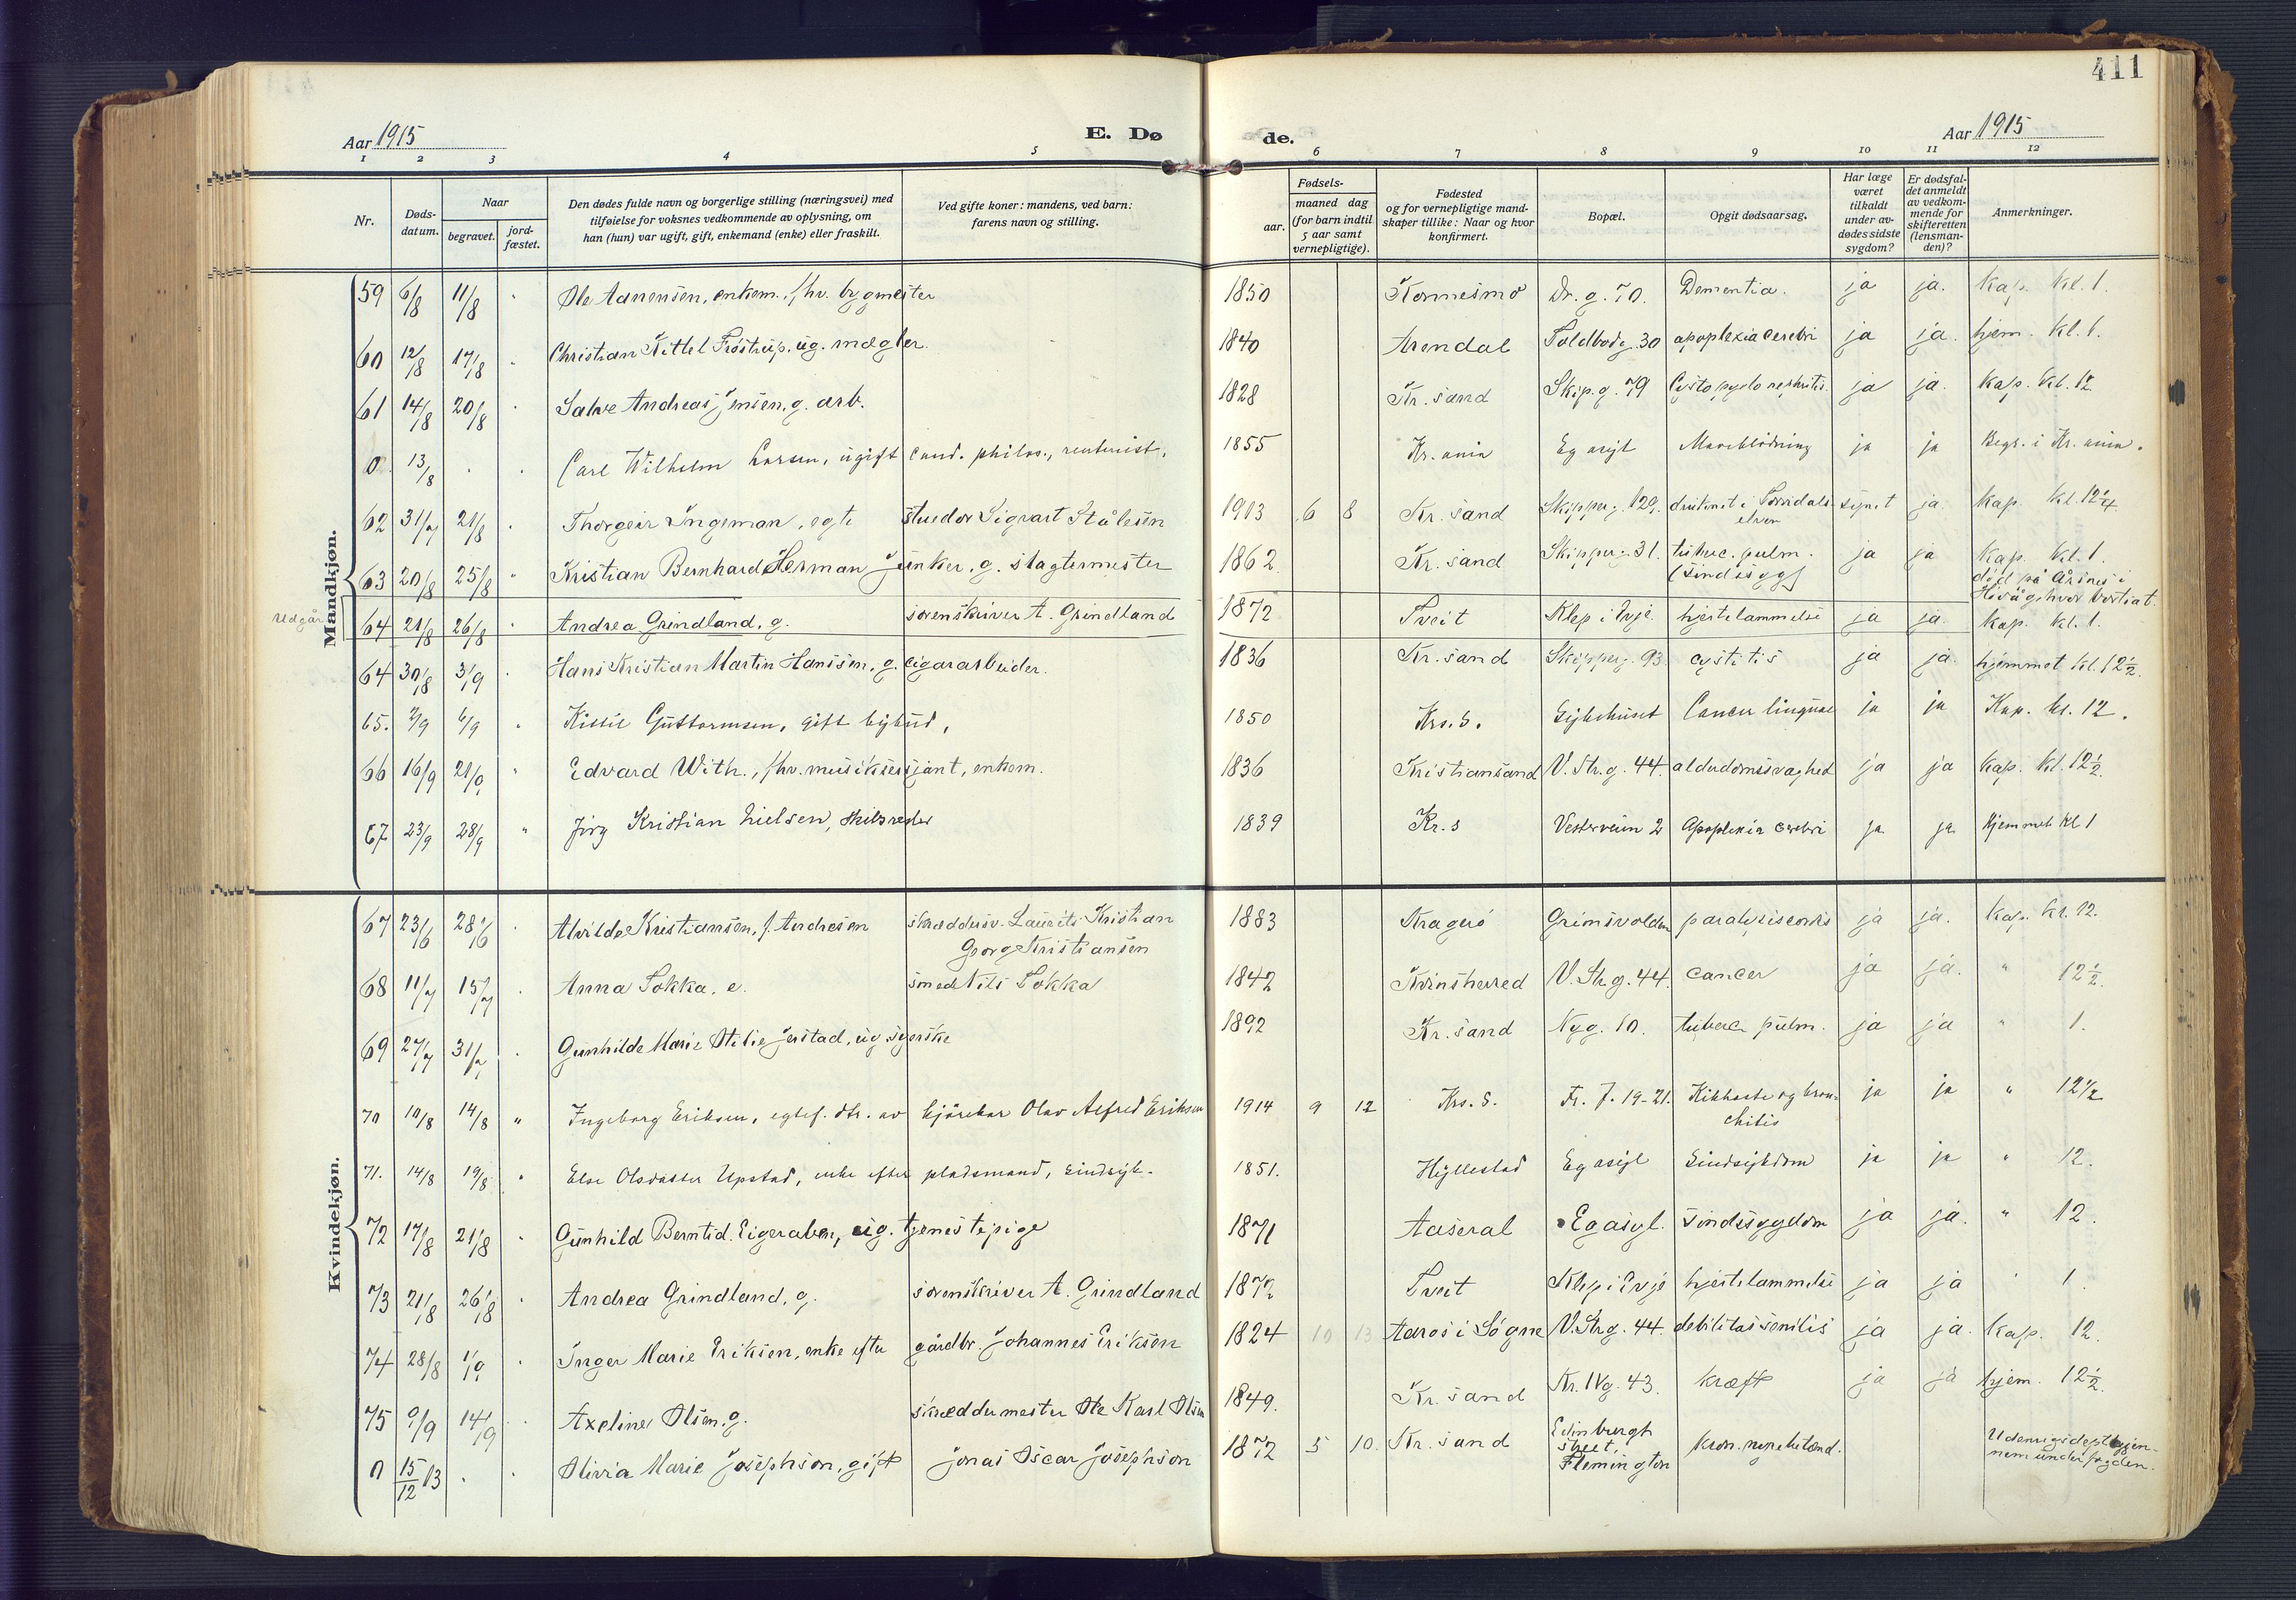 411
Aar 1915 E. Dø de. Aar 1915
1 2 3 4 5 6 7 8 9 10 11 12
Nr.
Døds-
datum.
Naar
begravet.
jord-
fæstet.
Den dødes fulde navn og borgerlige stilling (næringsvei) med
tilføielse for voksnes vedkommende av oplysning, om
han (hun) var ugift, gift, enkemand (enke) eller fraskilt.
Ved gifte koner: mandens, ved barn:
farens navn og stilling.
Fødsels-
aar.
maaned dag
(for barn indtil
5 aar samt
vernepligtige).
Fødested
og for vernepligtige mand-
skaper tillike: Naar og hvor
konfirmert.
Bopæl.
Opgit dødsaarsag.
Har læge
været
tilkaldt
under av-
dødes sidste
sygdom?
Er dødsfal-
det anmeldt
av vedkom-
mende for
skifteretten
(lensman-
den)?
Anmerkninger.
Mandkjøn.
59 6/8 11/8 " Ole Aanensen, enkem., fhv. bygmester 1850 Dr. g. 70. Dementia. ja ja. Kap. Kl. 1.
60 12/8 17/8 " Christian Kittel Frøstrup, ug. mægler. 1840 Arendal Toldbodg. 30 apoplexia cerebri ja ja. hjem. Kl. 1.
61 14/8 20/8 " Salve Andreas Jensen, g. arb. 1828 Kr. sand Skip. g. 79 Cystopyelonephritis. ja ja. Kap. Kl. 12
0 13/8 " " Carl Wilhelm Larsen, ugift cand. philos., rentenist, 1855 Kr. ania Eg asyl ja ja Begr. i Kr. ania.
62 31/7 21/8 " Thorgeir Ingeman, egte stuedor Sigvart Stålesen 1913 6 8 Kr. sand Skipperg. 129. druknet i Torridals-
elven synet ja Kap. Kl. 12 1/4
63 20/8 25/8 " Kristian Bernhard Herman Junker, g. slagtermester 1862 Kr. sand Skipperg. 31. tuberc. pulm.
(sindssyg) ja ja Kap. Kl. 1.
død på Årsnes i
Høvåg hvor bortsat.
Udgår
64 21/8 26/8 " Andrea Grindland, g. sorenskriver A. Grindland 1872 Tveit Klep i Evje. hjertelammelse ja ja Kap. Kl. 1.
64 30/8 3/9 " Hans Kristian Martin Hanssen, g. cigararbeider. 1836 Kr. sand Skipperg. 93. cystitis ja ja. hjemmet kl. 12 1/2.
65. 2/9 6/9 " Kittil Guttormsen, gift bybud, 1850 Krs. S. Sykehuset Cancer linguae ja ja Kap. kl. 12.
66 16/9 21/9 " Edvard With., fhv. musiksersjant, enkem. 1836 Kristiansand V. Str. g. 44. alderdomssvaghed ja ja Kap. Kl. 12 1/2.
67 23/9 28/9 " Jørg Kristian Nielsen, skibsreder 1839 Kr. s Vesterveien 2 Apoplexia cerebri ja ja Hjemmet kl 1
Kvindekjøn.
67 23/6 28/6 " Alvilde Kristiansen, f. Andresen skræddersv. Laurits Kristian
Georg Kristiansen 1883 Kragerø Grimsvolden paralysis cordis ja ja. Kap. Kl. 12.
68 11/7 15/7 " Anna Tokka. e. smed Nils Tokka 1842 Kvinsherred V. Str. g. 44. cancer ja ja. " 12 1/2.
69 27/7 31/7 " Gunhilde Marie Otilie Jerstad, ug. syerske 1892 Kr. sand Nyg. 10. tuberc. pulm. ja ja " 1.
70 10/8 14/8 " Ingeborg Eriksen, egtef. dtr. av kjørekar Olav Alfred Eriksen 1914 9 12 Krs. S. Fr. 7. 19-21. Kikhoste og bron-
chitis ja ja " 12 1/2
71. 14/8 19/8 " Else Olsdatter Upstad, enke efter pladsmand, sindsyk. 1851. Hyllestad Eg asyl Sindsykdom ja ja " 12.
72 17/8 21/8 " Gunhild Berntid. Eigeraben, ug. tjenestepige 1871 Aaseral Eg asyl. Sindssygdom ja ja. " 12.
73 21/8 26/8 " Andrea Grindland, g. sorenskriver A. Grindland 1872 Tveit Klep i Evje hjertelammelse ja ja " 1
74 28/8 1/9 " Inger Marie Eriksen, enke efter gårdbr. Johannes Eriksen 1824 10 13 Aaros i Søgne V. Strg. 44. debilitas senilis ja ja. Kap. 12.
75 9/9 14/9 " Axeline Olsen, g. skræddermester Ole Karl Olsen 1849. Kr. sand Kr. IVg. 43. kræft ja ja hjem. 12 1/2.
0 15/12 13 " " Olivia Marie Josephson, gift Jonas Oscar Josephson 1872 5 10. Kr. sand Edinburgh
Street,
Flemington kron. nyrebetænd. Udenrigsdept. gjen-
nem